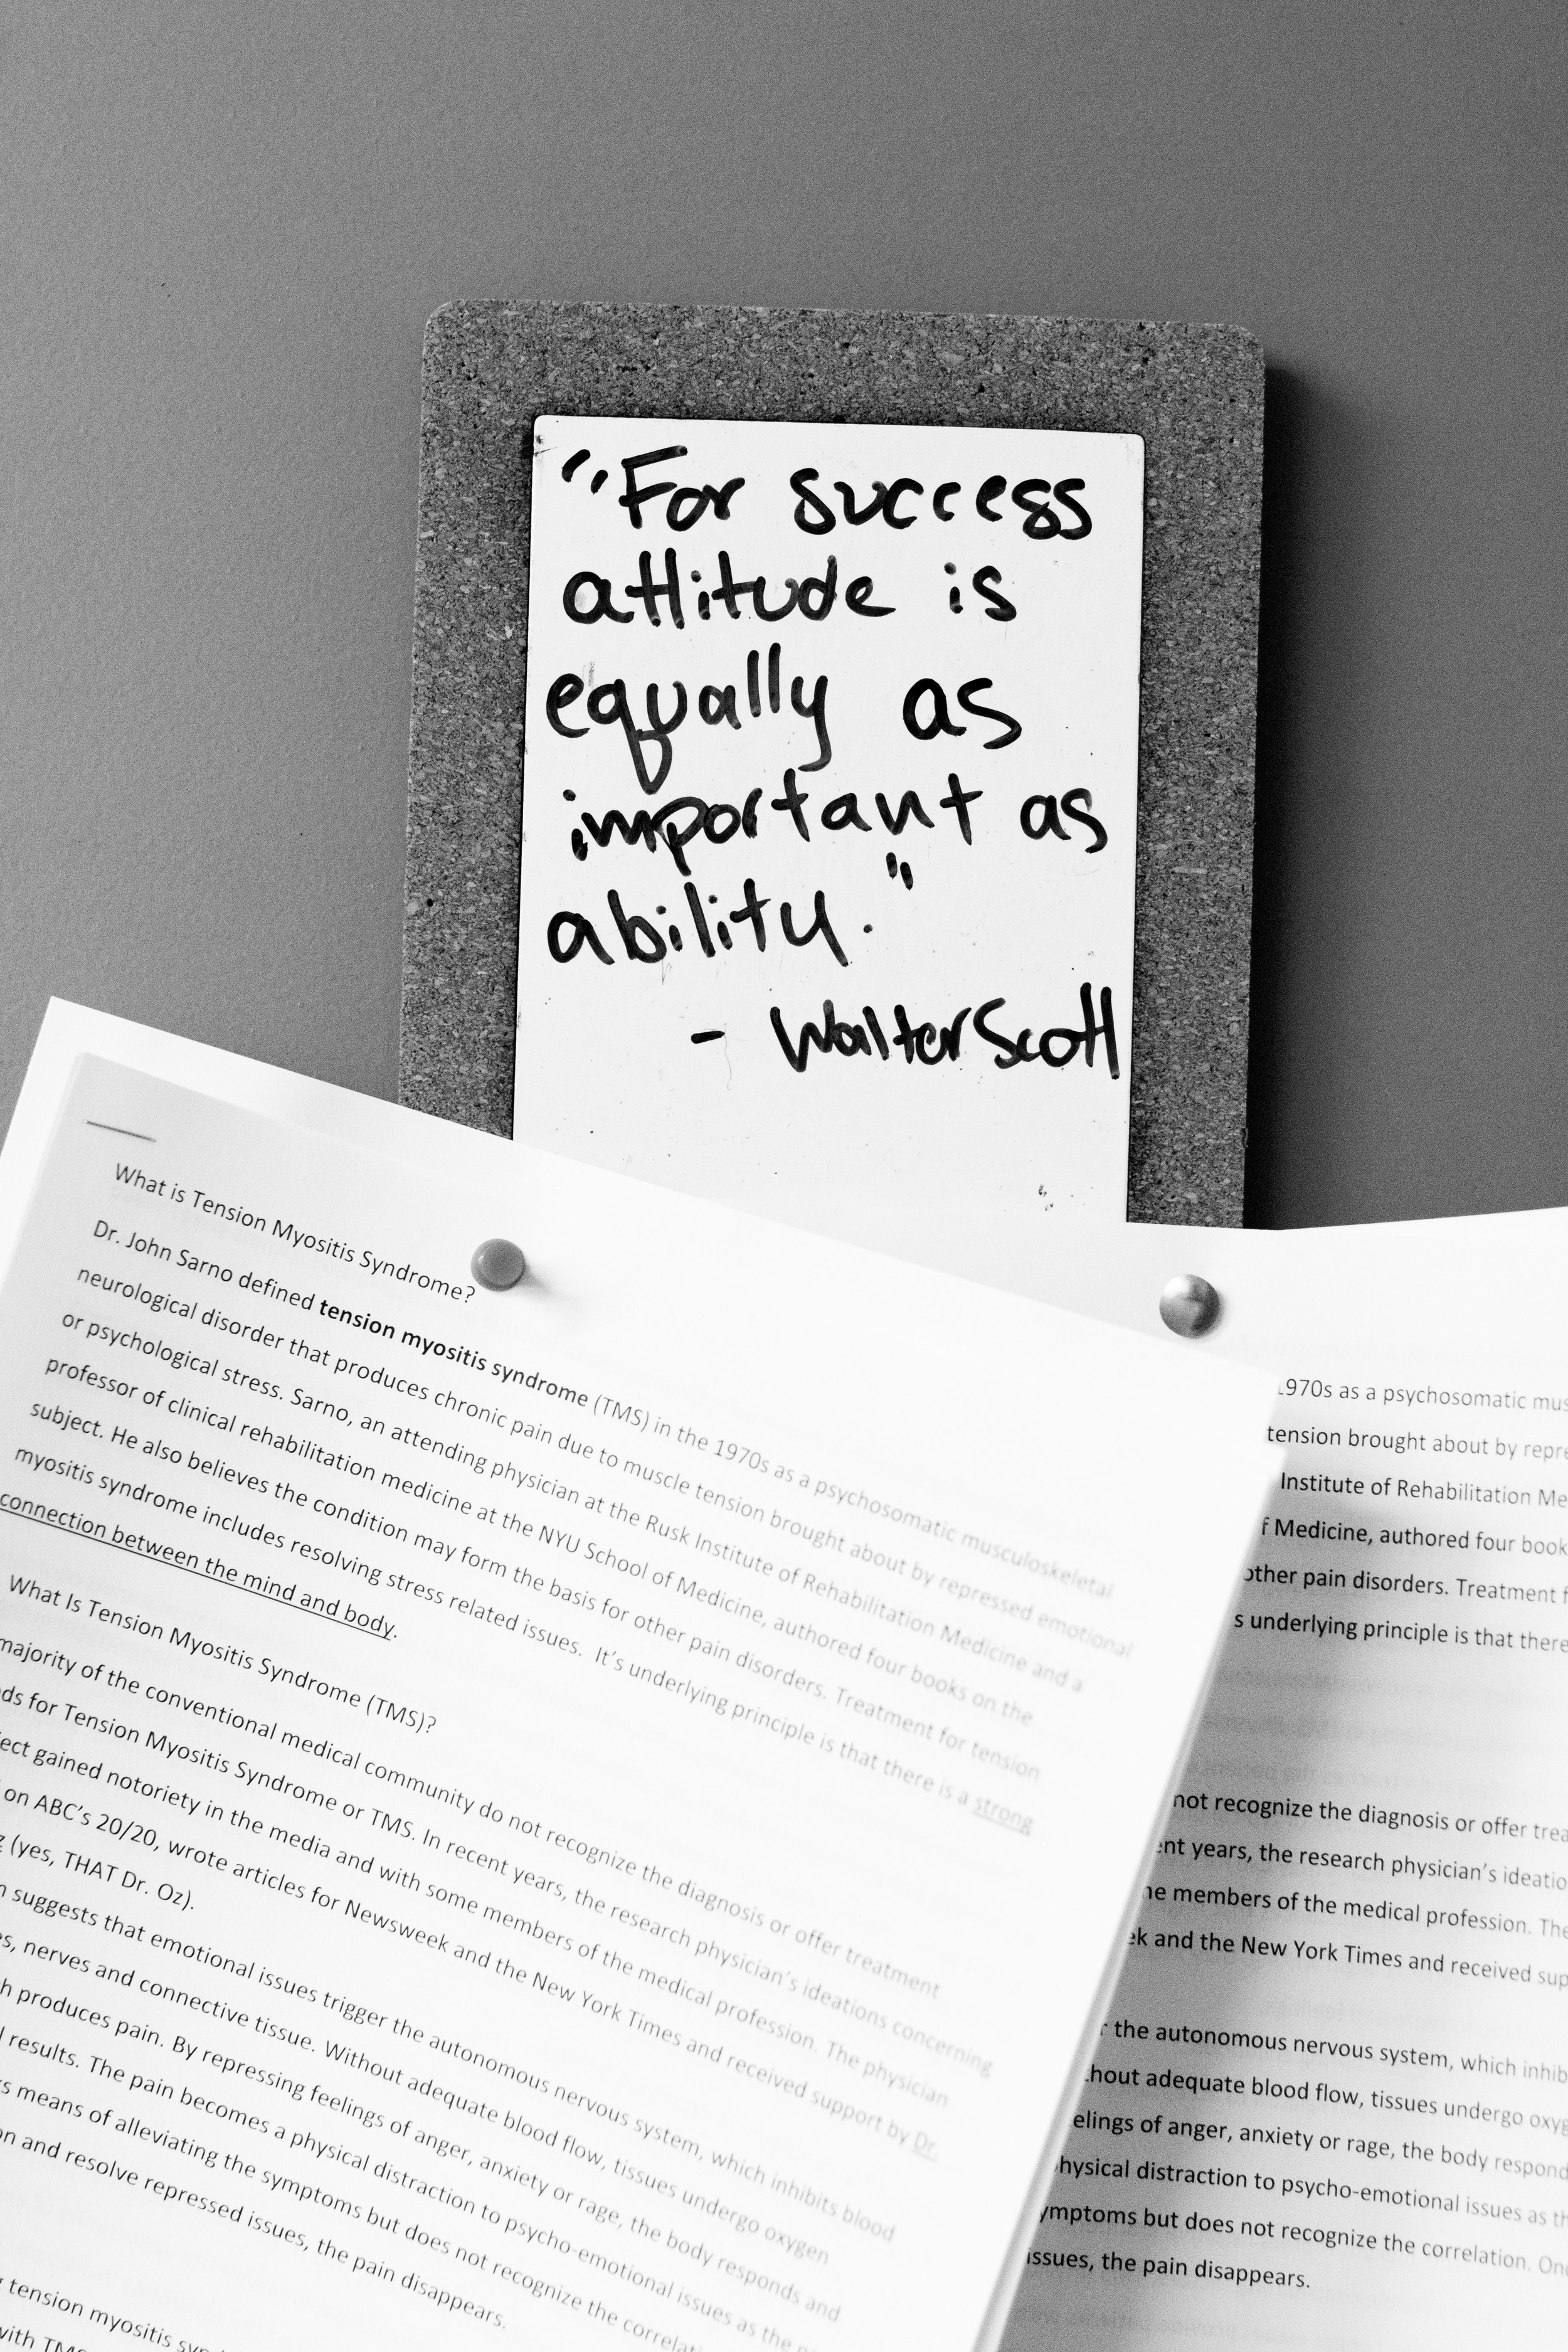 "For success
attitude is
equally as
important as
ability."
- Walter Scott
What is Tension Myositis Syndrome?
Dr. John Sarno defined tension myositis syndrome (TMS) in the 1970s as a psychosomatic musculoskeletal
neurological disorder that produces chronic pain due to muscle tension brought about by repressed emotional
or psychological stress. Sarno, an attending physician at the Rusk Institute of Rehabilitation Medicine and a
professor of clinical rehabilitation medicine at the NYU School of Medicine, authored four books on the
subject. He also believes the condition may form the basis for other pain disorders. Treatment for tension
myositis syndrome includes resolving stress related issues. It's underlying principle is that there is a strong
connection between the mind and body.
What Is Tension Myositis Syndrome (TMS)?
majority of the conventional medical community do not recognize the diagnosis or offer treatment
for Tension Myositis Syndrome or TMS. In recent years, the research physician's ideations concerning
gained notoriety in the media and with some members of the medical profession. The physician
on ABC's 20/20, wrote articles for Newsweek and the New York Times and received support by Dr.
(yes, THAT Dr. Oz).
suggests that emotional issues trigger the autonomous nervous system, which inhibits blood
nerves and connective tissue. Without adequate blood flow, tissues undergo oxygen
produces pain. By repressing feelings of anger, anxiety or rage, the body responds and
results. The pain becomes a physical distraction to psycho-emotional issues as the
means of alleviating the symptoms but does not recognize the
and resolve repressed issues, the pain disappears.
tension myositis
with TMS
1970s as a psychosomatic
tension brought about by
Institute of Rehabilitation
Medicine, authored four
other pain disorders. Treatment
underlying principle is that there
not recognize the diagnosis or offer
years, the research physician's
members of the medical profession. The
and the New York Times and received
the autonomous nervous system, which
adequate blood flow, tissues undergo
of anger, anxiety or rage, the body
physical distraction to psycho-emotional issues as
symptoms but does not recognize the correlation.
issues, the pain disappears.